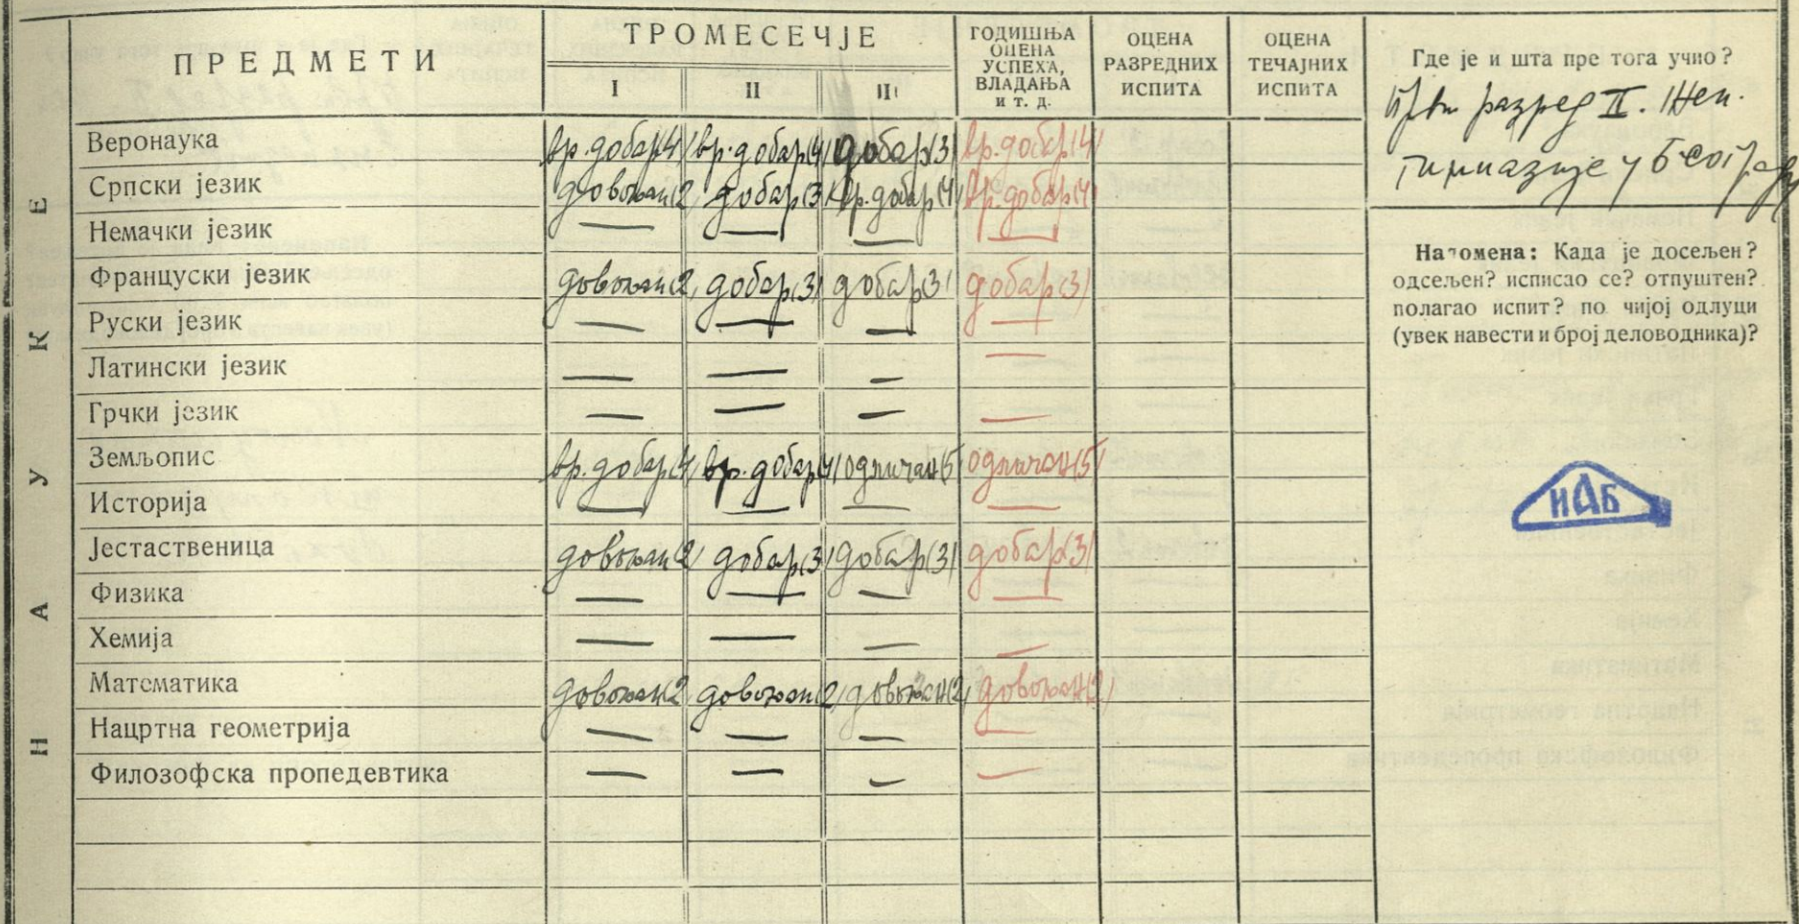 ПРЕДМЕТИ ТРОМЕСЕЧЈЕ ГОДИШЊА ОЦЕНА УСПЕХА, ВЛАДАЊА И Т. Д. ОЦЕНА РАЗРЕДНИХ ИСПИТА ОЦЕНА ТЕЧАЈНИХ ИСПИТА
I II III
НАУКЕ
Веронаука вр. добар(4) вр. добар(4) добар(3) вр. добар(4)
Српски језик довољан(2) добар(3) вр. добар(4) вр. добар(4)
Немачки језик — — — —
Француски језик довољан(2) добар(3) добар(3) добар(3)
Руски језик — — — —
Латински језик — — — —
Грчки језик — — — —
Земљопис вр. добар(4) вр. добар(4) одличан(5) одличан(5)
Историја — — — —
Јестаственица довољан(2) добар(3) добар(3) добар(3)
Физика — — — —
Хемија — — — —
Математика довољан(2) довољан(2) довољан(2) довољан(2)
Нацртна геометрија — — — —
Филозофска пропедевтика — — — —
Где је и шта пре тога учио?
Први разред II. Жен.
гимназије у Београду
Напомена: Када је досељен?
одсељен? исписао се? отпуштен?
полагао испит? по чијој одлуци
(увек навести и број деловодника)?
ИАБ